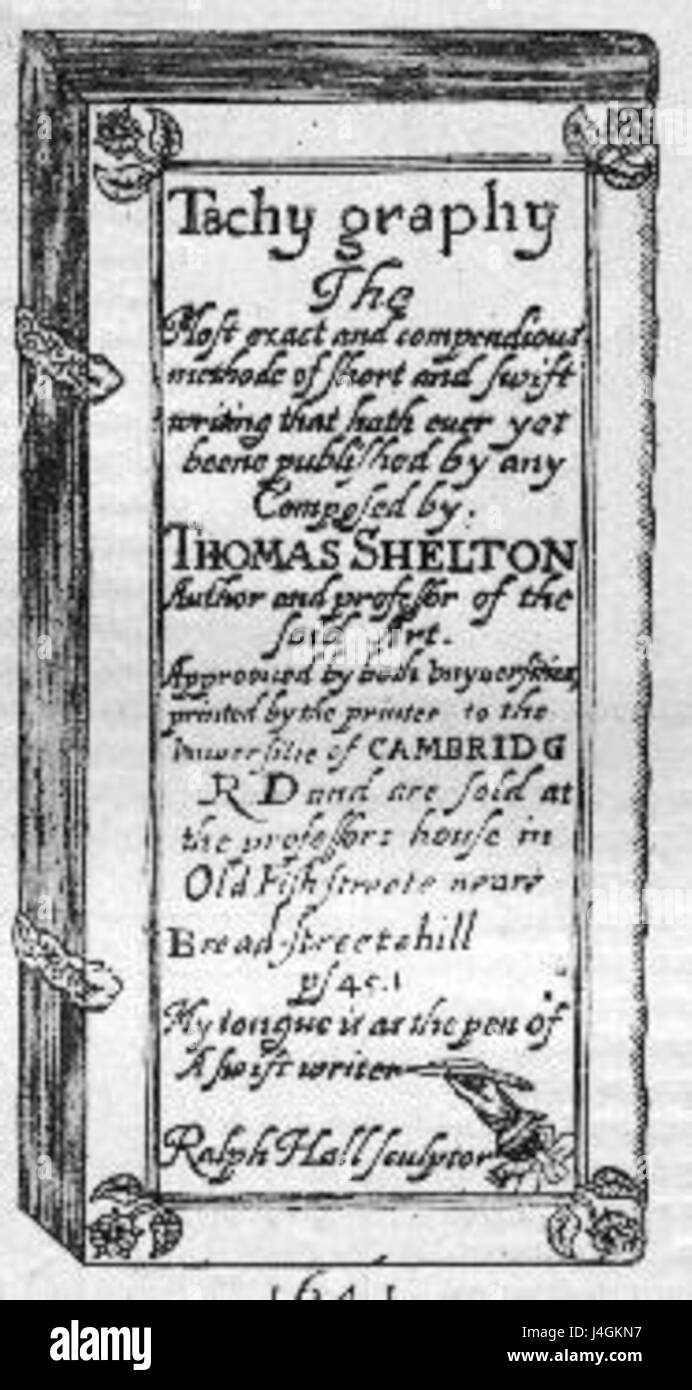 Tachy graphy
The
Most exact and compendious
methode of short and swift
writing that hath ever yet
beene published by any
Composed by.
THOMAS SHELTON
Author and professor of the
said Art.
Approoued by both
printed by the printer to the
of CAMBRIDG
R D and are sold at
the professors house in
Old Fish streete neare
Bread-streetehill
ps 45.1
My tongue is as the pen of
A swift writer
Ralph Hall sculptor
1641
alamy
Image ID: J4GKN7
www.alamy.com